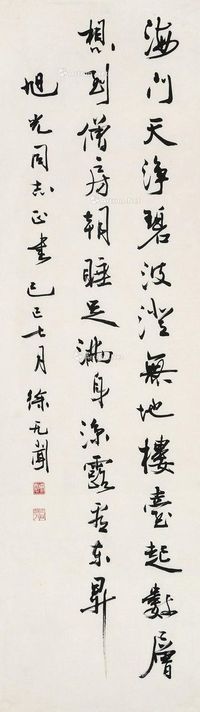 海门天淨碧波澄無地樓臺起數層
想到僧房朝睡足滿身涼露看东昇
旭光同志正書 己巳七月 徐无聞